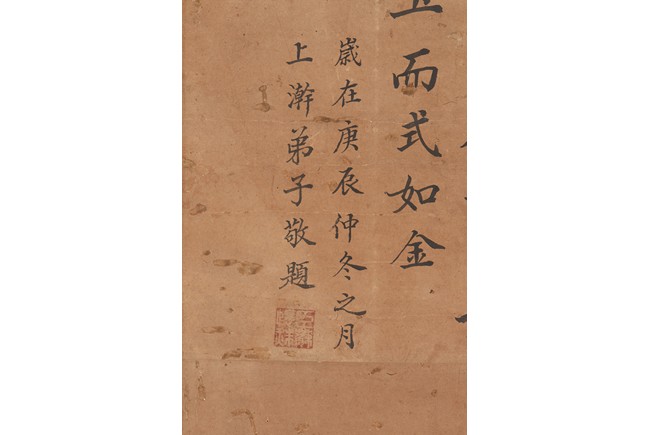 而式如金
歲在庚辰仲冬之月
上澣弟子敬題